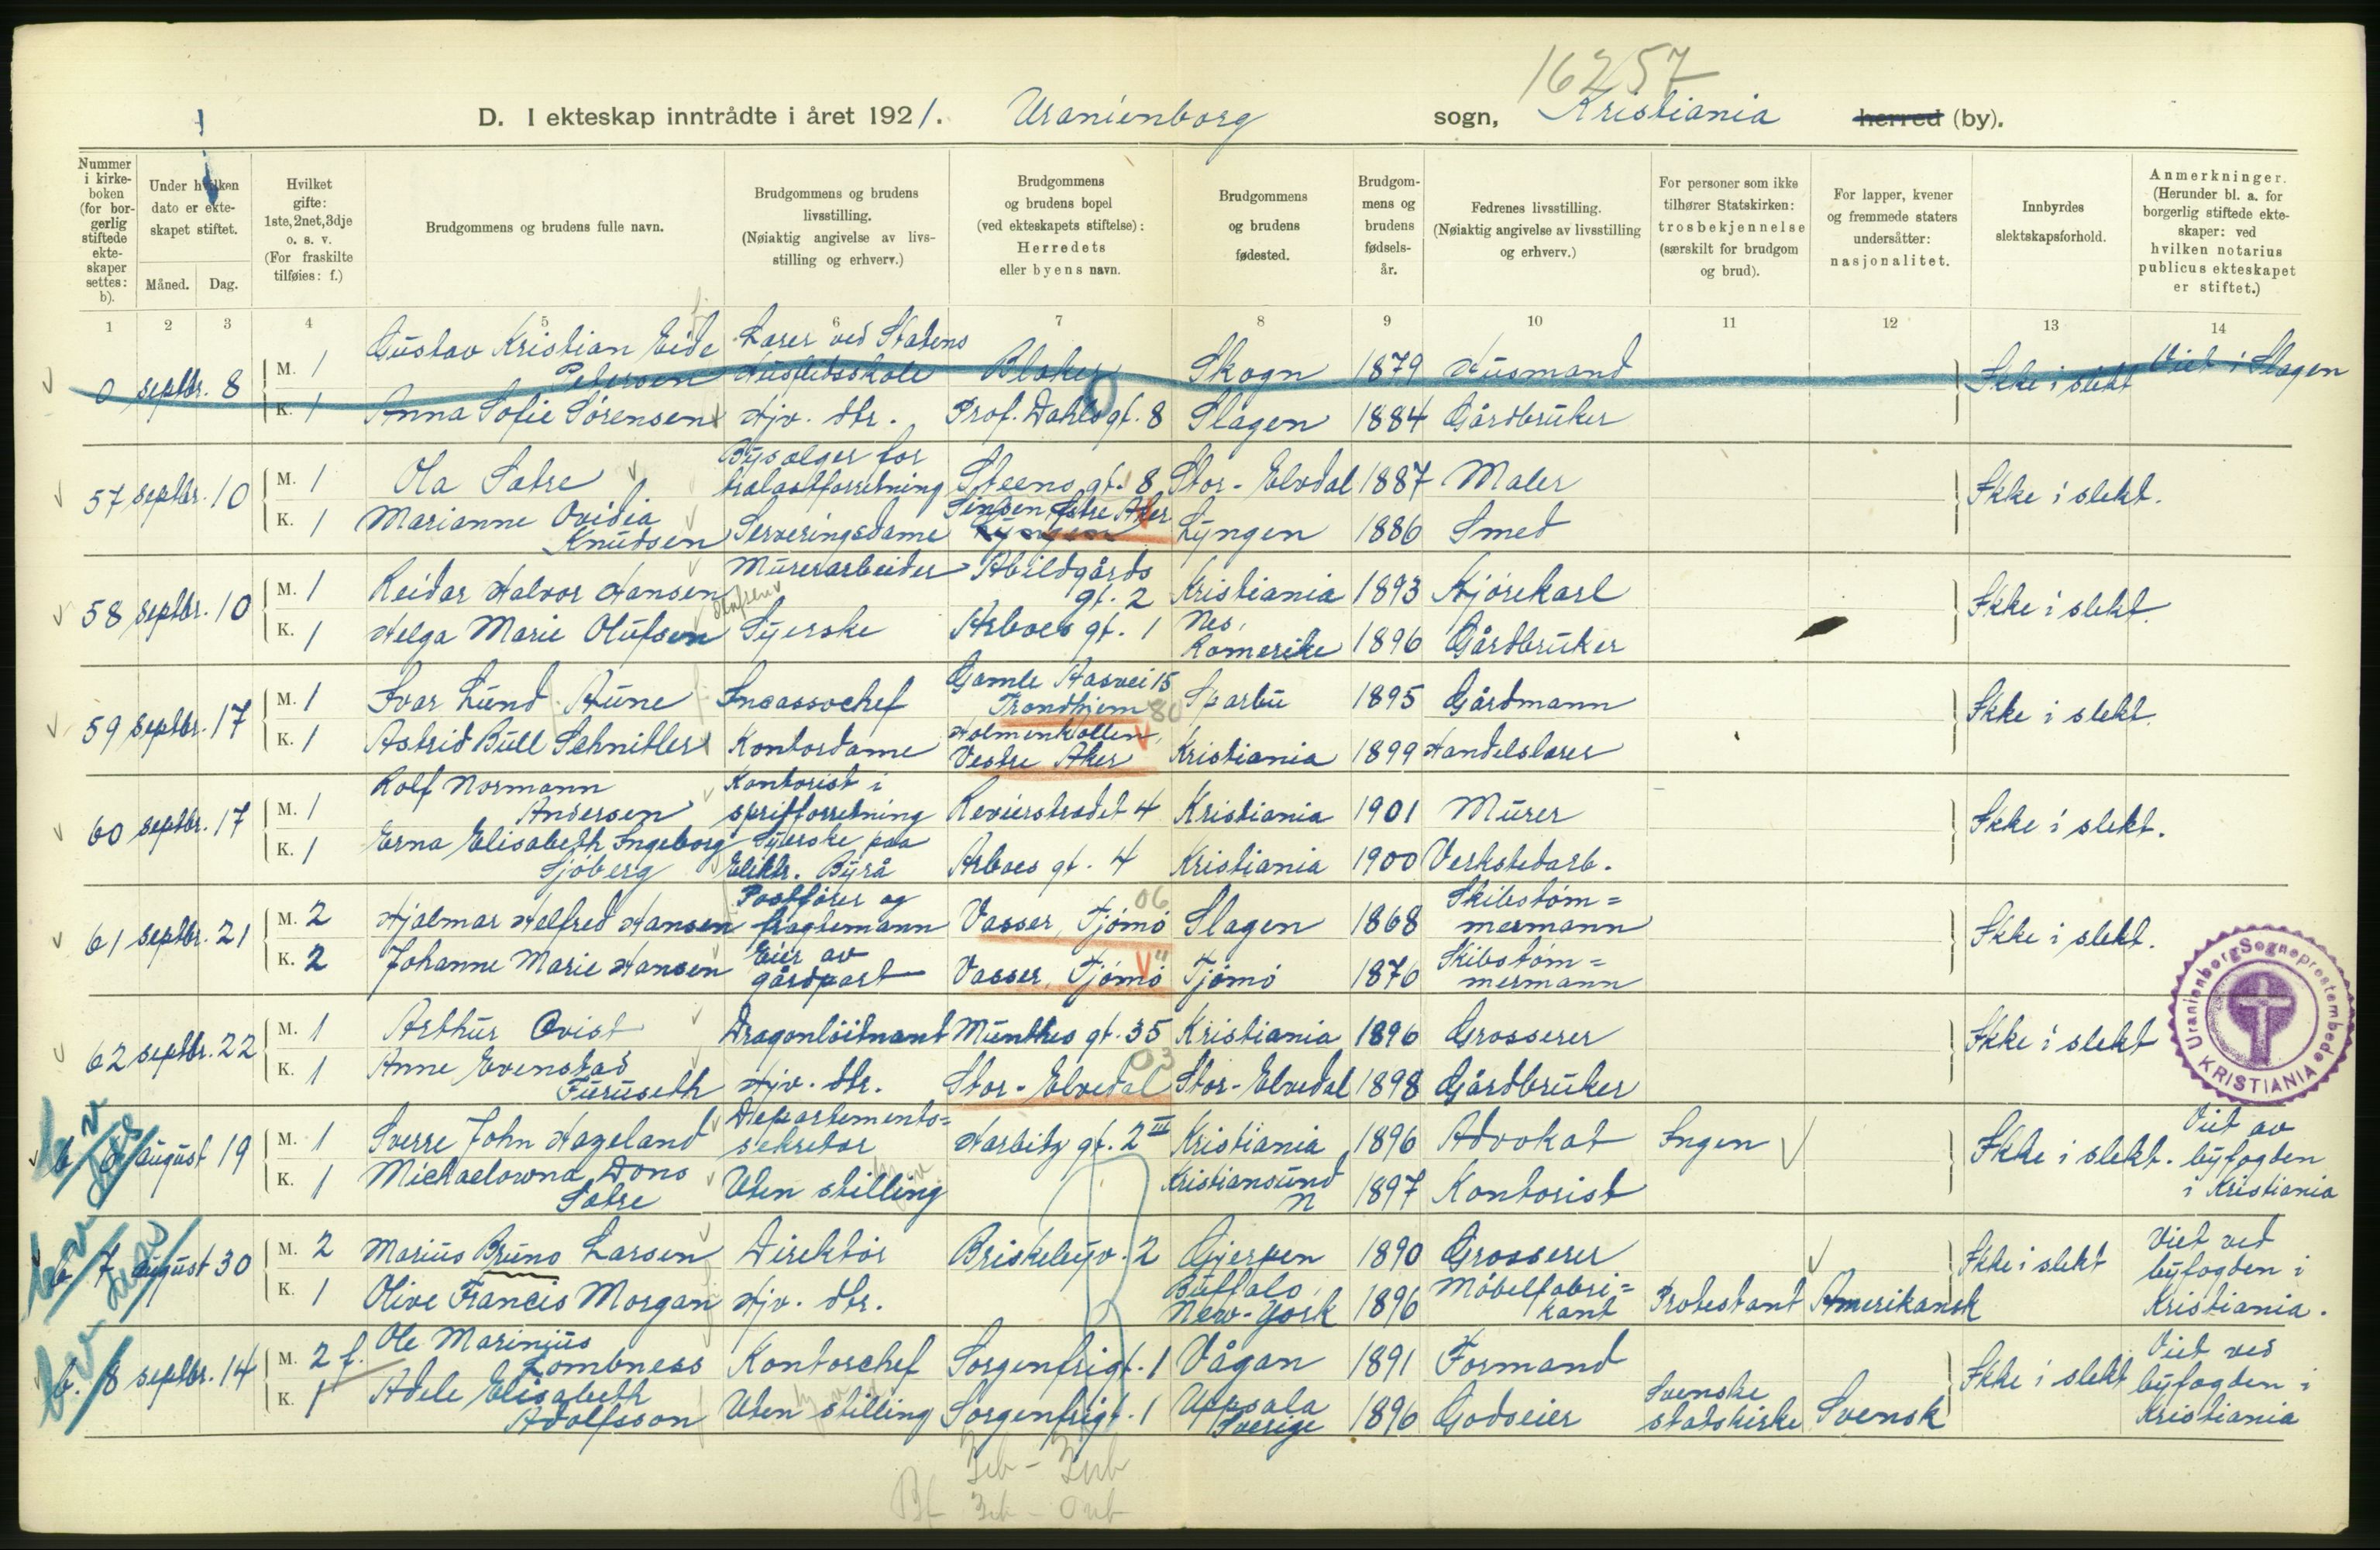 16257
D. I ekteskap inntrådte i året 1921. Uranienborg sogn, Kristiania herred (by).
Nummer i kirke-boken (for bor-gerlig stiftede ekte-skaper settes: b).
Under hvilken dato er ekte-skapet stiftet.
Måned. Dag.
Hvilket gifte: 1ste, 2net, 3dje o. s. v. (For fraskilte tilføies: f.)
Brudgommens og brudens fulle navn.
Brudgommens og brudens livsstilling. (Nøiaktig angivelse av livs-stilling og erhverv.)
Brudgommens og brudens bopel (ved ekteskapets stiftelse): Herredets eller byens navn.
Brudgommens og brudens fødested.
Brudgom-mens og brudens fødsels-år.
Fedrenes livsstilling. (Nøiaktig angivelse av livsstilling og erhverv.)
For personer som ikke tilhører Statskirken: trosbekjennelse (særskilt for brudgom og brud).
For lapper, kvener og fremmede staters undersåtter: nasjonalitet.
Innbyrdes slektskapsforhold.
Anmerkninger. (Herunder bl. a. for borgerlig stiftede ekte-skaper: ved hvilken notarius publicus ekteskapet er stiftet.)
1 2 3 4 5 6 7 8 9 10 11 12 13 14
0 septbr. 8 M. 1 Gustav Kristian Eide Petersen Lærer ved Statens Husflidsskole Blaker Skogn 1879 Husmand Ikke i slekt Viet i Slagen
K. 1 Anna Sofie Sørensen Hjv. dtr. Prof. Dahls gt. 8 Slagen 1884 Gårdbruker
57 septbr. 10 M. 1 Ola Sætre Bysælger for trælastforretning Steens gt. 8 Stor-Elvdal 1887 Maler Ikke i slekt.
K. 1 Marianne Ovidia Knudsen Serveringsdame Sinsen Østre Aker Lyngen Lyngen 1886 Smed
58 septbr. 10 M. 1 Reidar Halvor Hansen Murerarbeider Abildgårds gt. 2 Kristiania 1893 Kjørekarl Ikke i slekt.
K. 1 Helga Marie Olufsen Olafsen Syerske Arboes gt. 1 Nes, Romerike 1896 Gårdbruker
59 septbr. 17 M. 1 Ivar Lund Aune Incassochef Gamle Aasvei 15 Trondhjem 80 Sparbu 1895 Gårdmann Ikke i slekt.
K. 1 Astrid Bull Schnitler Kontordame Holmenkollen, Vestre Aker Kristiania 1899 Handelslærer
60 septbr. 17 M. 1 Rolf Normann Andersen Kontorist i spritforretning Revierstrædet 4 Kristiania 1901 Murer Ikke i slekt.
K. 1 Erna Elisabeth Ingeborg Sjøberg Syerske paa Elektr. Byrå Arboes gt. 4 Kristiania 1900 Verkstedarb.
61 septbr. 21 M. 2 Hjalmar Halfred Hansen Postfører og fragtemann Vasser, Tjømø 06 Slagen 1868 Skibstøm=mermann Ikke i slekt.
K. 2 Johanne Marie Hansen Eier av gårdpart Vasser, Tjømø " Tjømø 1876 Skibstøm=mermann
62 septbr. 22 M. 1 Arthur Qvist Dragonløitnant Munthes gt. 35 Kristiania 1896 Grosserer Ikke i slekt
K. 1 Anne Evenstad Furuseth Hjv. dtr. Stor-Elvedal 03 Stor-Elvedal 1898 Gårdbruker
Uranienborg Sogneprestembede KRISTIANIA
b 6 august 19 M. 1 Sverre John Hazeland Departements=sekretær Harbitz gt. 2 III Kristiania 1896 Advokat Ingen Ikke i slekt. Viet av byfogden i Kristiania
K. 1 Michaelowna Dons Sætre Uten stilling Kristiansund N 1897 Kontorist
b. 7 august 30 M. 2 Marius Bruno Larsen Direktør Briskebyv. 2 Gjerpen 1890 Grosserer Ikke i slekt Viet ved byfogden i Kristiania.
K. 1 Olive Francis Morgan Hjv. dtr. Buffalo, New-York 1896 Møbelfabri=kant Protestant Amerikansk
b. 8 septbr. 14 M. 2 f. Ole Marinius Lombness Kontorchef Sorgenfrigt. 1 Vågan 1891 Formand Ikke i slekt Viet ved byfogden i Kristiania
K. 1 Adele Elisabeth Adolfsson Uten stilling Sorgenfrigt. 1 Uppsala Sverige 1896 Godseier Svenske statskirke Svensk